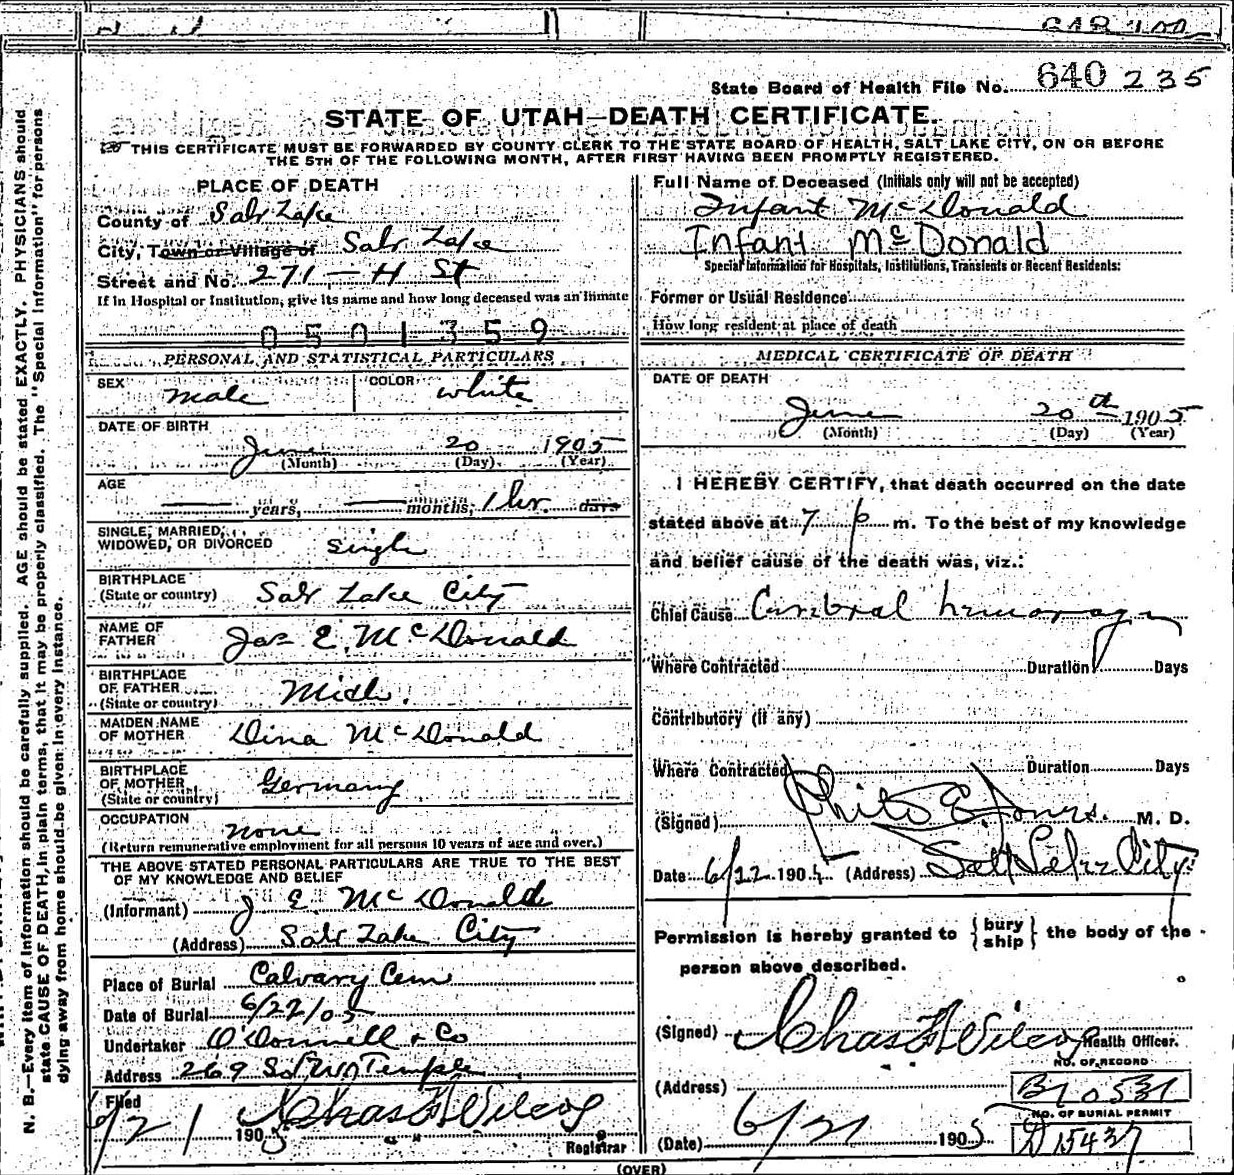 State Board of Health File No. 640 235
STATE OF UTAH—DEATH CERTIFICATE.
THIS CERTIFICATE MUST BE FORWARDED BY COUNTY CLERK TO THE STATE BOARD OF HEALTH, SALT LAKE CITY, ON OR BEFORE
THE 5TH OF THE FOLLOWING MONTH, AFTER FIRST HAVING BEEN PROMPTLY REGISTERED.
PLACE OF DEATH
County of Salt Lake
City, Town or Village of Salt Lake
Street and No. 271 - H St
If in Hospital or Institution, give its name and how long deceased was an inmate
0501359
PERSONAL AND STATISTICAL PARTICULARS
SEX male COLOR white
DATE OF BIRTH
June 20 1905
(Month) (Day) (Year)
AGE
years, months, 1 hr. days
SINGLE, MARRIED,
WIDOWED, OR DIVORCED single
BIRTHPLACE
(State or country) Salt Lake City
NAME OF
FATHER Jas E. McDonald
BIRTHPLACE
OF FATHER
(State or country) Mich.
MAIDEN NAME
OF MOTHER Dina McDonald
BIRTHPLACE
OF MOTHER
(State or country) Germany
OCCUPATION none
(Return remunerative employment for all persons 10 years of age and over.)
THE ABOVE STATED PERSONAL PARTICULARS ARE TRUE TO THE BEST
OF MY KNOWLEDGE AND BELIEF
(Informant) J E McDonald
(Address) Salt Lake City
Place of Burial Calvary Cem
Date of Burial 6/22/05
Undertaker O'Donnell & Co
Address 269 So W Temple
Filed
6/21 1905 Chas F Wilcox
Registrar
Full Name of Deceased (Initials only will not be accepted)
Infant McDonald
Infant McDonald
Special Information for Hospitals, Institutions, Transients or Recent Residents:
Former or Usual Residence
How long resident at place of death
MEDICAL CERTIFICATE OF DEATH
DATE OF DEATH
June 20th 1905
(Month) (Day) (Year)
I HEREBY CERTIFY, that death occurred on the date
stated above at 7 p m. To the best of my knowledge
and belief cause of the death was, viz.:
Chief Cause Cerebral hemoragy
Where Contracted Duration Days
Contributory (if any)
Where Contracted Duration Days
(Signed) Philo E. Jones. M. D.
Date 6/22 1905 (Address) Salt Lake City
Permission is hereby granted to {bury ship} the body of the
person above described.
(Signed) Chas F Wilcox Health Officer.
NO. OF RECORD
(Address) B10531
NO. OF BURIAL PERMIT
(Date) 6/21 1905 D15437
(OVER)
N. B.—Every item of information should be carefully supplied. AGE should be stated EXACTLY. PHYSICIANS should
state CAUSE OF DEATH, in plain terms, that it may be properly classified. The "Special Information" for persons
dying away from home should be given in every instance.